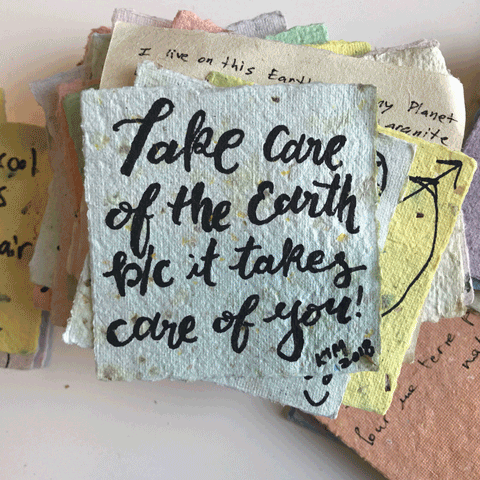 Take care
of the Earth
b/c it takes
care of you!
KTM
2018
I live on this Earth
my Planet
granite
cool
air
Pour me terre